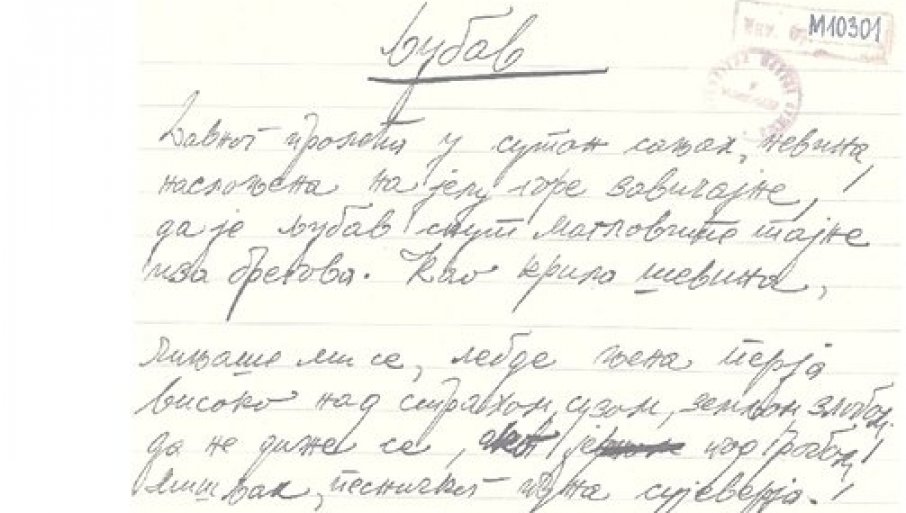 M10301
Љубав
Давног пролећа у сутон сањах, невина,
наслоњена на јелу горе завичајне,
да је љубав скут магловите тајне
иза брегова. Као крила шевина,
Чињаше ми се, лебде њена перја
високо над страхом, сузом, земљом злобом.
да не диже се, је под гробом
мишљах, песничког пуна сујеверја.